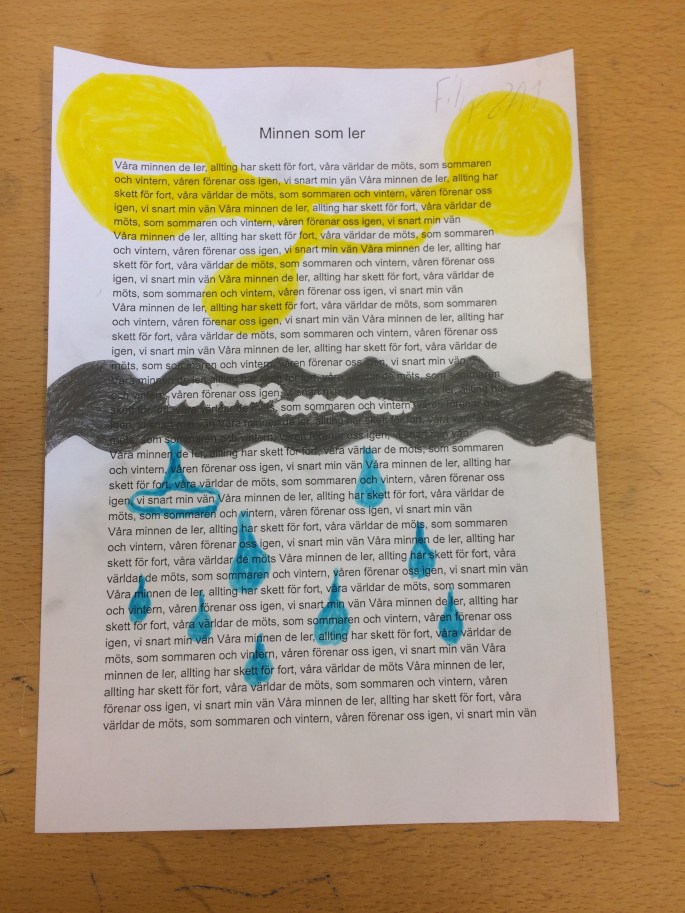 Filip
Minnen som ler
Våra minnen de ler, allting har skett för fort, våra världar de möts, som sommaren
och vintern, våren förenar oss igen, vi snart min vän Våra minnen de ler, allting har
skett för fort, våra världar de möts, som sommaren och vintern, våren förenar oss
igen, vi snart min vän Våra minnen de ler, allting har skett för fort, våra världar de
möts, som sommaren och vintern, våren förenar oss igen, vi snart min vän
Våra minnen de ler, allting har skett för fort, våra världar de möts, som sommaren
och vintern, våren förenar oss igen, vi snart min vän Våra minnen de ler, allting har
skett för fort, våra världar de möts, som sommaren och vintern, våren förenar oss
igen, vi snart min vän Våra minnen de ler, allting har skett för fort, våra världar de
möts, som sommaren och vintern, våren förenar oss igen, vi snart min vän
Våra minnen de ler, allting har skett för fort, våra världar de möts, som sommaren
och vintern, våren förenar oss igen, vi snart min vän Våra minnen de ler, allting har
skett för fort, våra världar de möts, som sommaren och vintern, våren förenar oss
igen, vi snart min vän Våra minnen de ler, allting har skett för fort, våra världar de
möts, som sommaren och vintern, våren förenar oss igen, vi snart min vän
Våra minnen
och vintern, våren förenar oss igen, vi snart min
skett för som sommaren och vintern, våren förenar oss
igen,
möts, som sommaren och vintern, våren förenar oss igen, vi snart min vän
Våra minnen de ler, allting har skett för fort, våra världar de möts, som sommaren
och vintern, våren förenar oss igen, vi snart min vän Våra minnen de ler, allting har
skett för fort, våra världar de möts, som sommaren och vintern, våren förenar oss
igen, vi snart min vän Våra minnen de ler, allting har skett för fort, våra världar de
möts, som sommaren och vintern, våren förenar oss igen, vi snart min vän
Våra minnen de ler, allting har skett för fort, våra världar de möts, som sommaren
och vintern, våren förenar oss igen, vi snart min vän Våra minnen de ler, allting har
skett för fort, våra världar de möts Våra minnen de ler, allting har skett för fort, våra
världar de möts, som sommaren och vintern, våren förenar oss igen, vi snart min vän
Våra minnen de ler, allting har skett för fort, våra världar de möts, som sommaren
och vintern, våren förenar oss igen, vi snart min vän Våra minnen de ler, allting har
skett för fort, våra världar de möts, som sommaren och vintern, våren förenar oss
igen, vi snart min vän Våra minnen de ler, allting har skett för fort, våra världar de
möts, som sommaren och vintern, våren förenar oss igen, vi snart min vän Våra
minnen de ler, allting har skett för fort, våra världar de möts Våra minnen de ler,
allting har skett för fort, våra världar de möts, som sommaren och vintern, våren
förenar oss igen, vi snart min vän Våra minnen de ler, allting har skett för fort, våra
världar de möts, som sommaren och vintern, våren förenar oss igen, vi snart min vän